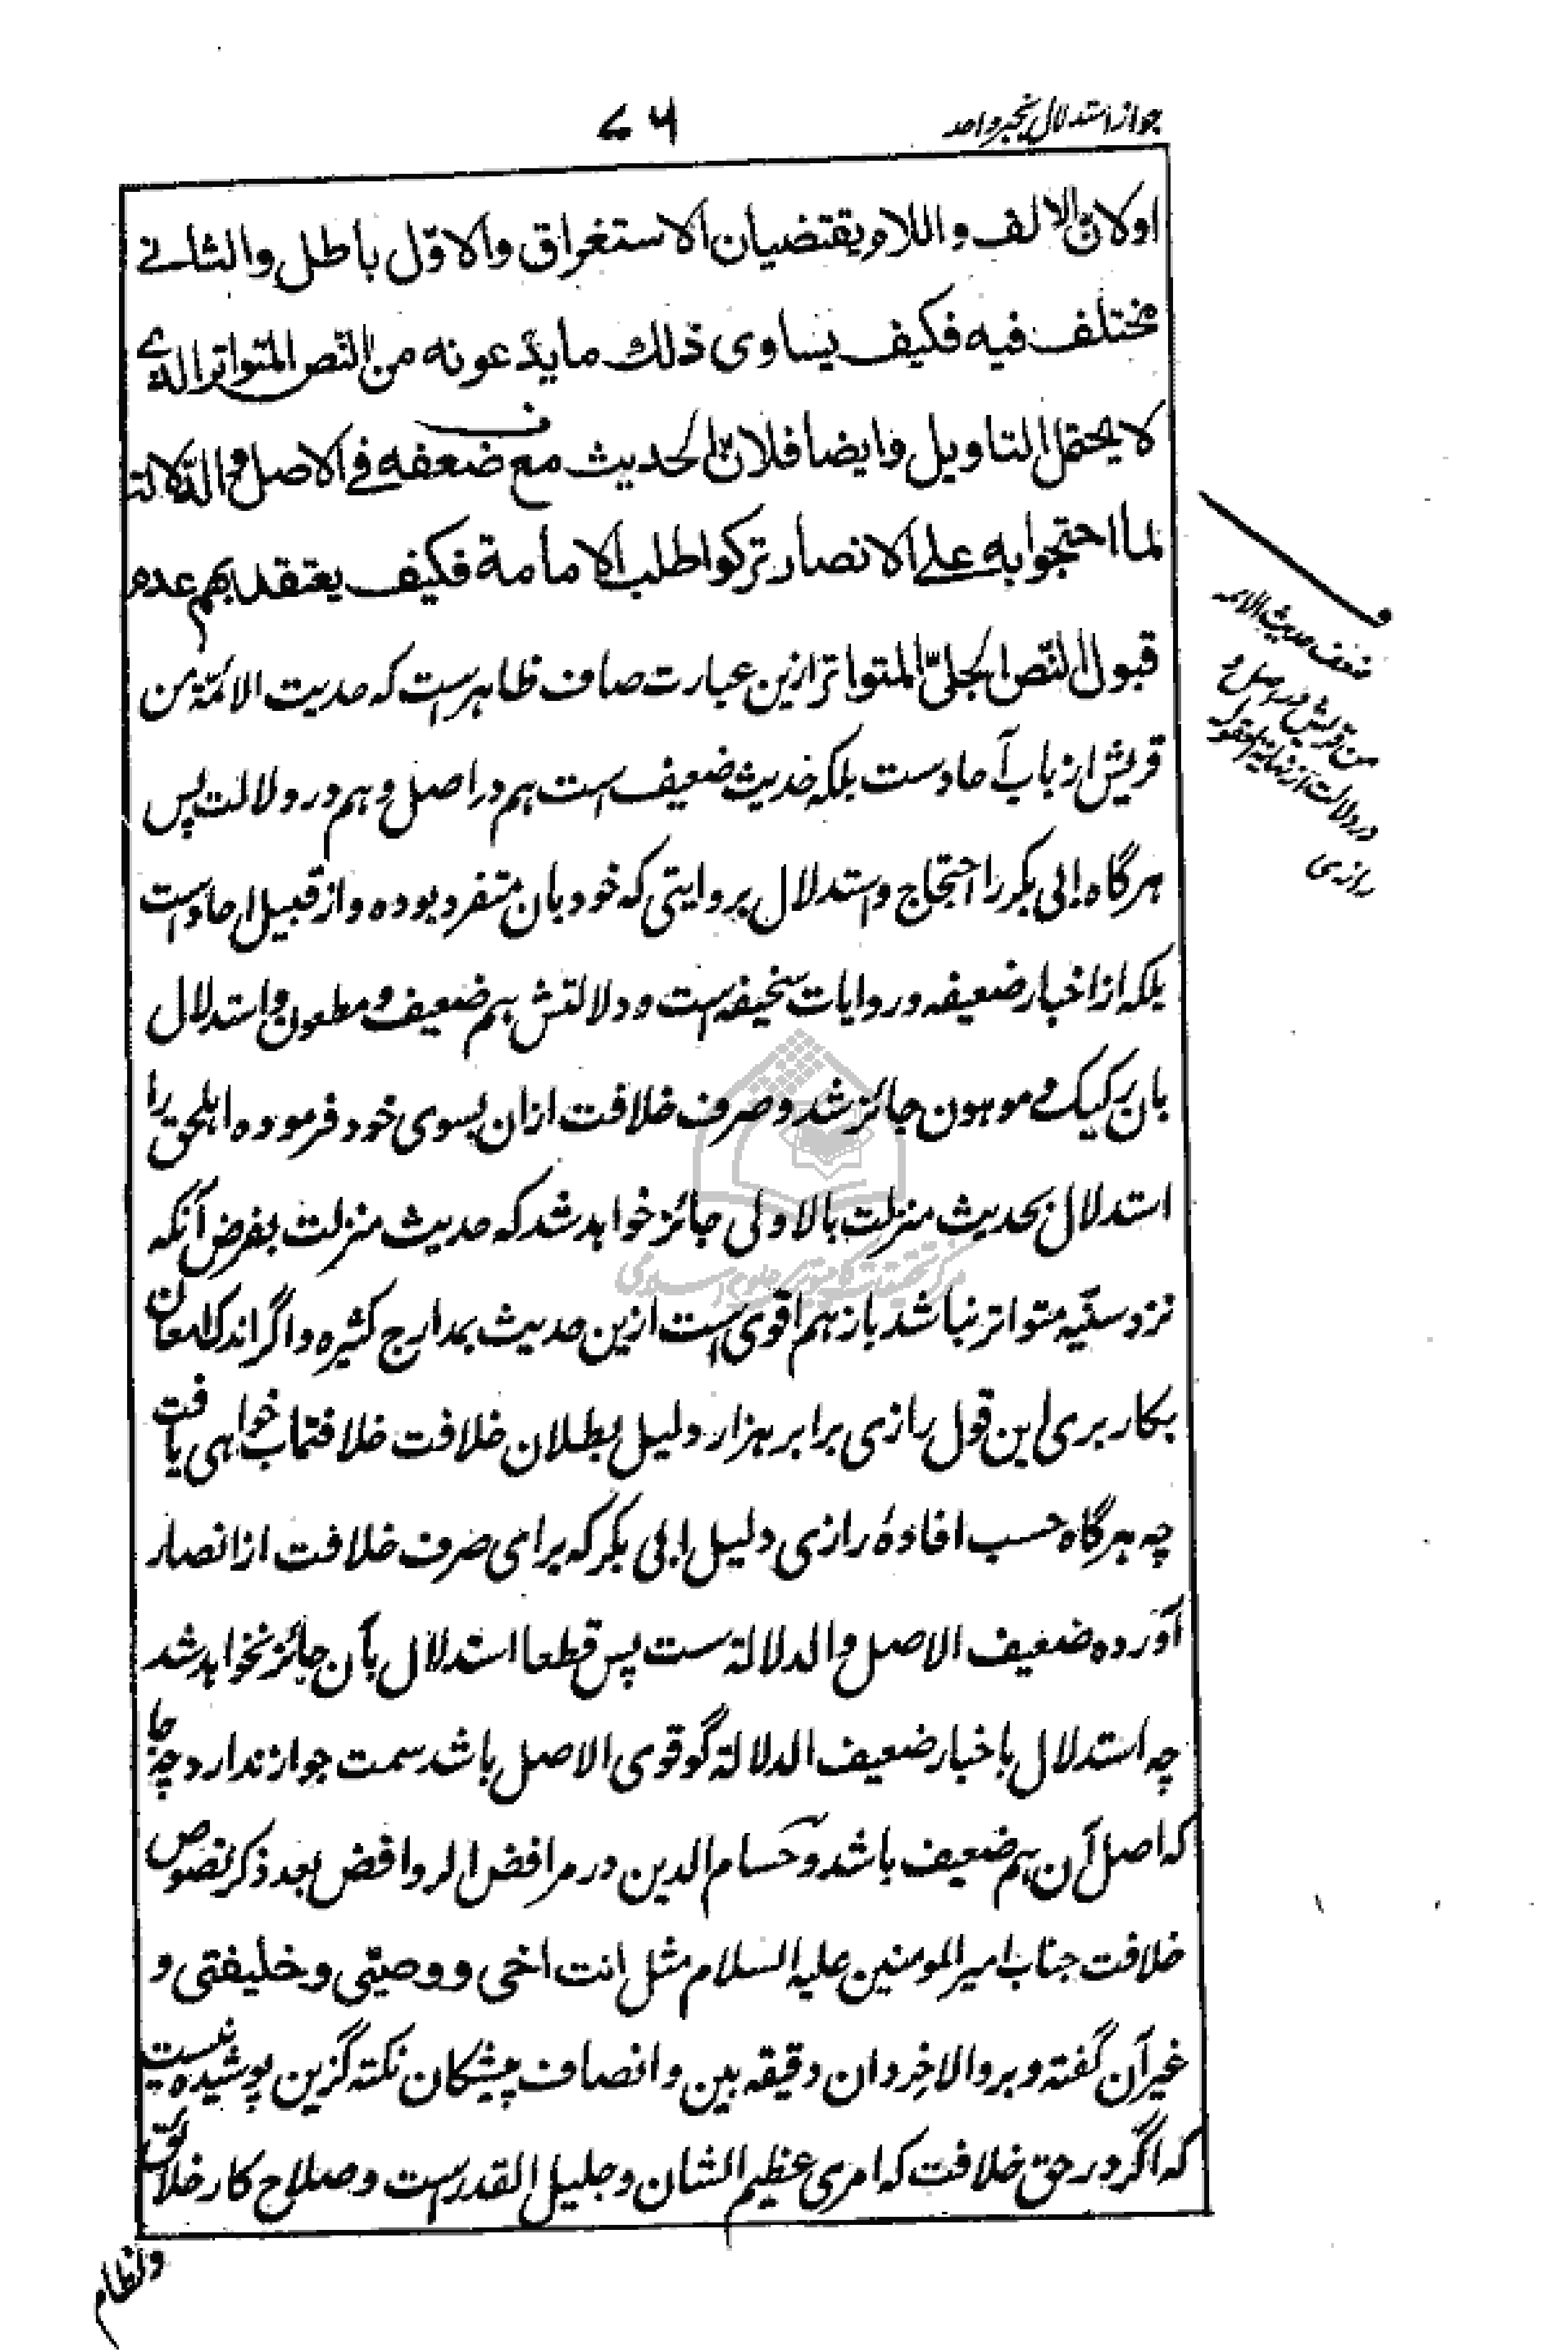 جواز استدلال بخبر واحد
۷۶
اولان الالف واللام یقتضیان الاستغراق والاوّل باطل والثانے
مختلف فیه فکیف یساوی ذلك ما یدّعونه من النّص المتواتر الذے
لا یحتمل التاویل وایضا فلان الحدیث مع ضعفه فے الاصل و الدّلالة
لما احتجوا به علے الانصار ترکوا طلب الامامة فکیف یعتقد بهم عدم
قبول النّص الجلیّ المتواتر ازین عبارت صاف ظاهرست که حدیث الائمّة من
قریش از باب آحادست بلکه حدیث ضعیف است هم در اصل و هم در دلالت پس
هرگاه ابی بکر را احتجاج و استدلال بروایتی که خود بان متفرد بوده و از قبیل احادست
بلکه از اخبار ضعیفه و روایات سخیفه است و دلالتش هم ضعیف و مطعون و استدلال
بان رکیک و موهون جائز شد و صرف خلافت ازان بسوی خود فرموده اهلحق را
استدلال بحدیث منزلت بالاولی جائز خواهد شد که حدیث منزلت بفرض آنکه
نزد سنّیه متواتر نباشد باز هم اقوی است ازین حدیث بمدارج کثیره و اگر اندک امعان
بکار بری این قول رازی برابر هزار دلیل بطلان خلافت خلافتماب خواهی یافت
چه هرگاه حسب افادۀ رازی دلیل ابی بکر که برای صرف خلافت از انصار
آورده ضعیف الاصل و الدلالة ست پس قطعا استدلال بآن جائز نخواهد شد
چه استدلال باخبار ضعیف الدلالة گو قوی الاصل باشد سمت جواز ندارد چه جا
که اصل آن هم ضعیف باشد و حسام الدین در مرافض الروافض بعد ذکر نصوص
خلافت جناب امیر المومنین علیه السلام مثل انت اخی و وصیّی و خلیفتی و
غیر آن گفته و بر والا خردان دقیقه بین و انصاف پیشگان نکته گزین پوشیده نیست
که اگر در حق خلافت که امری عظیم الشان و جلیل القدرست و صلاح کار خلائق
و نظام
ضعف حدیث الائمه
من قریش در اصل و
در دلالت از نهایة العقول
رازی